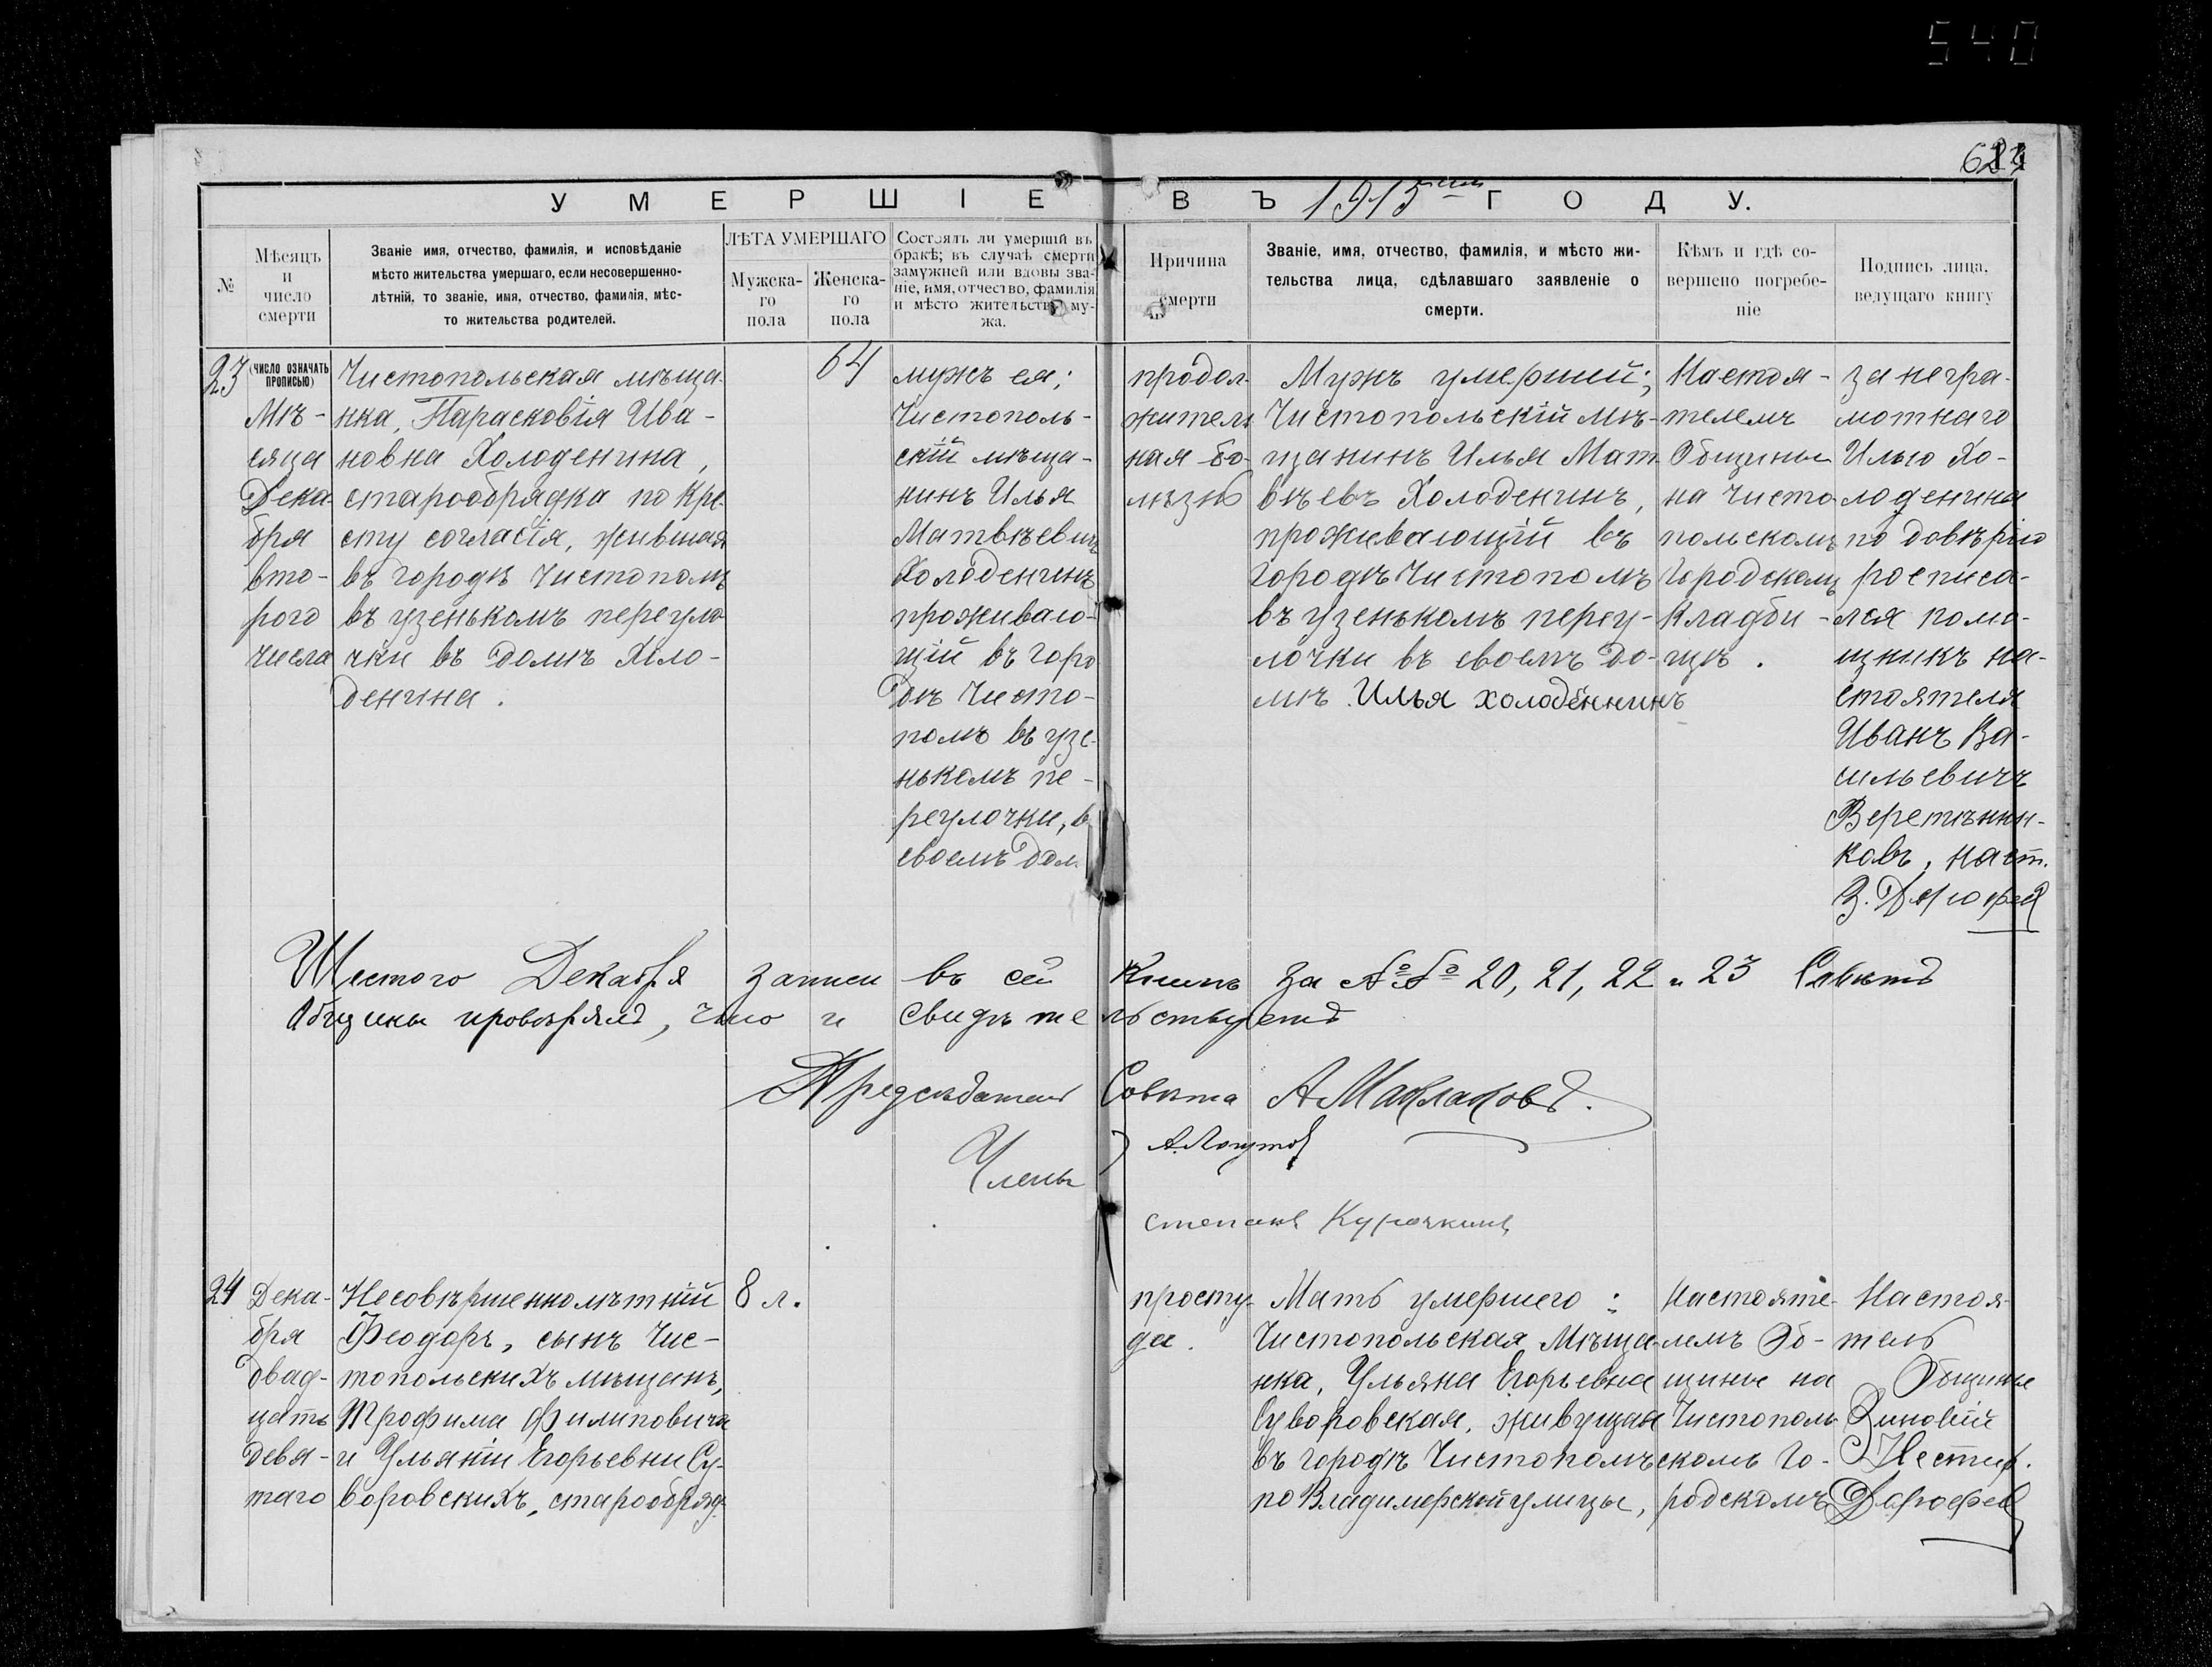 540
УМЕРШІЕ ВЪ 1915 ГОДУ.
№
Мѣсяцъ
и
число
смерти
Званіе имя, отчество, фамилія, и исповѣданіе
мѣсто жительства умершаго, если несовершенно-
лѣтній, то званіе, имя, отчество, фамилія, мѣс-
то жительства родителей.
ЛѢТА УМЕРШАГО
Мужска-
го
пола
Женска-
го
пола
Состоялъ ли умершій въ
бракѣ; въ случаѣ смерти
замужней или вдовы зва-
ніе, имя, отчество, фамилія
и мѣсто жительства му-
жа.
Причина
смерти
Званіе, имя, отчество, фамилія, и мѣсто жи-
тельства лица, сдѣлавшаго заявленіе о
смерти.
Кѣмъ и гдѣ со-
вершено погребе-
ніе
Подпись лица,
ведущаго книгу
23
(ЧИСЛО ОЗНАЧАТЬ
ПРОПИСЬЮ)
Мѣ-
сяца
Дека-
бря
вто-
рого
числа
Чистопольская мѣща-
нка, Парасковія Ива-
новна Холоденина,
старообрядка по Кре-
сту согласія, жившая
въ городѣ Чистополѣ
въ узенькомъ переуло
чки въ домѣ Холо-
денина.
64
мужъ ея;
Чистополь-
скій мѣща-
нинъ Илья
Матвѣевичъ
Холоденинъ
проживаю-
щій въ горо
дѣ Чисто-
полѣ въ узе-
нькомъ пе-
реулочки, в
своемъ дом.
продол-
жительн
ная бо-
лѣзнь
Мужъ умершей;
Чистопольскій мѣ-
щанинъ Илья Мат-
вѣевъ Холоденинъ,
проживающій въ
городѣ Чистополѣ
въ узенькомъ переу-
лочки въ своемъ до-
мѣ. Илья холодённинъ
Настоя-
телемъ
Общины
на Чисто
польскомъ
Городскомъ
Кладби-
щѣ.
за негра-
мотнаго
Илью Хо-
лоденина
по довѣрію
росписа-
лся помо-
щникъ на-
стоятеля
Иванъ Ва-
сильевичъ
Веретѣнни-
ковъ, наст.
Шестого Декабря записи въ сей Книгѣ за №№ 20, 21, 22 и 23 Совѣтъ
Общины провѣрялъ, что и свидѣтельствуетъ
Председатель Совѣта АМаклаковъ.
Члены
степанъ Курочкинъ
24
Дека-
бря
двад-
цать
девя-
таго
Несовѣршеннолѣтній
Феодоръ, сынъ Чис-
топольскихъ мѣщанъ,
Трофима Филиповича
и Ульяніи Егорьевни Су-
воровскихъ, старообряд-
8 л.
просту-
да.
Мать умершего:
Чистопольская Мѣща-
нка, Ульяна Егорьевна
Суворовская, живущая
въ городѣ Чистополѣ
по Владимерской улицы,
Настояте-
лемъ Об-
щины на
Чистополь-
скомъ Го-
родскомъ
Настоя-
тель
Общины
Зиновій